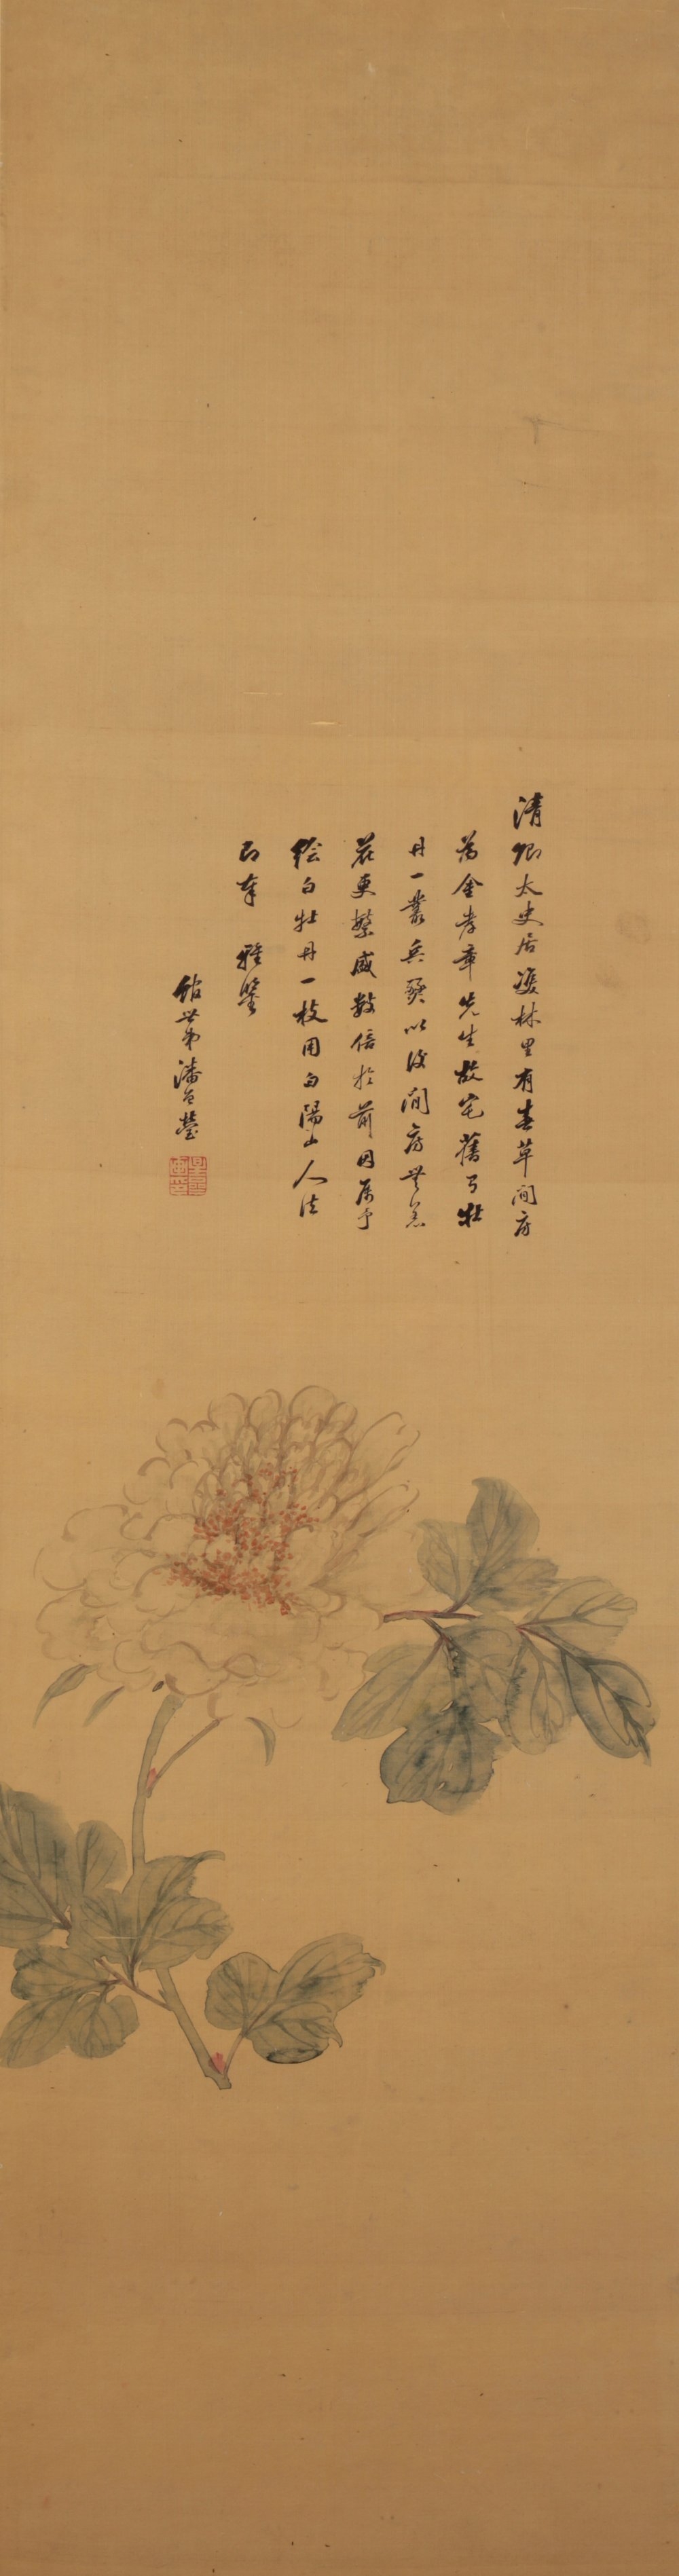 清卿太史居雙林里有春草閒房
為金孝章先生故宅舊有牡
丹一叢兵燹以後閒房無恙
花更繁盛數倍於前因屬予
繪白牡丹一枝用白陽山人法
即奉 雅鑒
館世弟潘